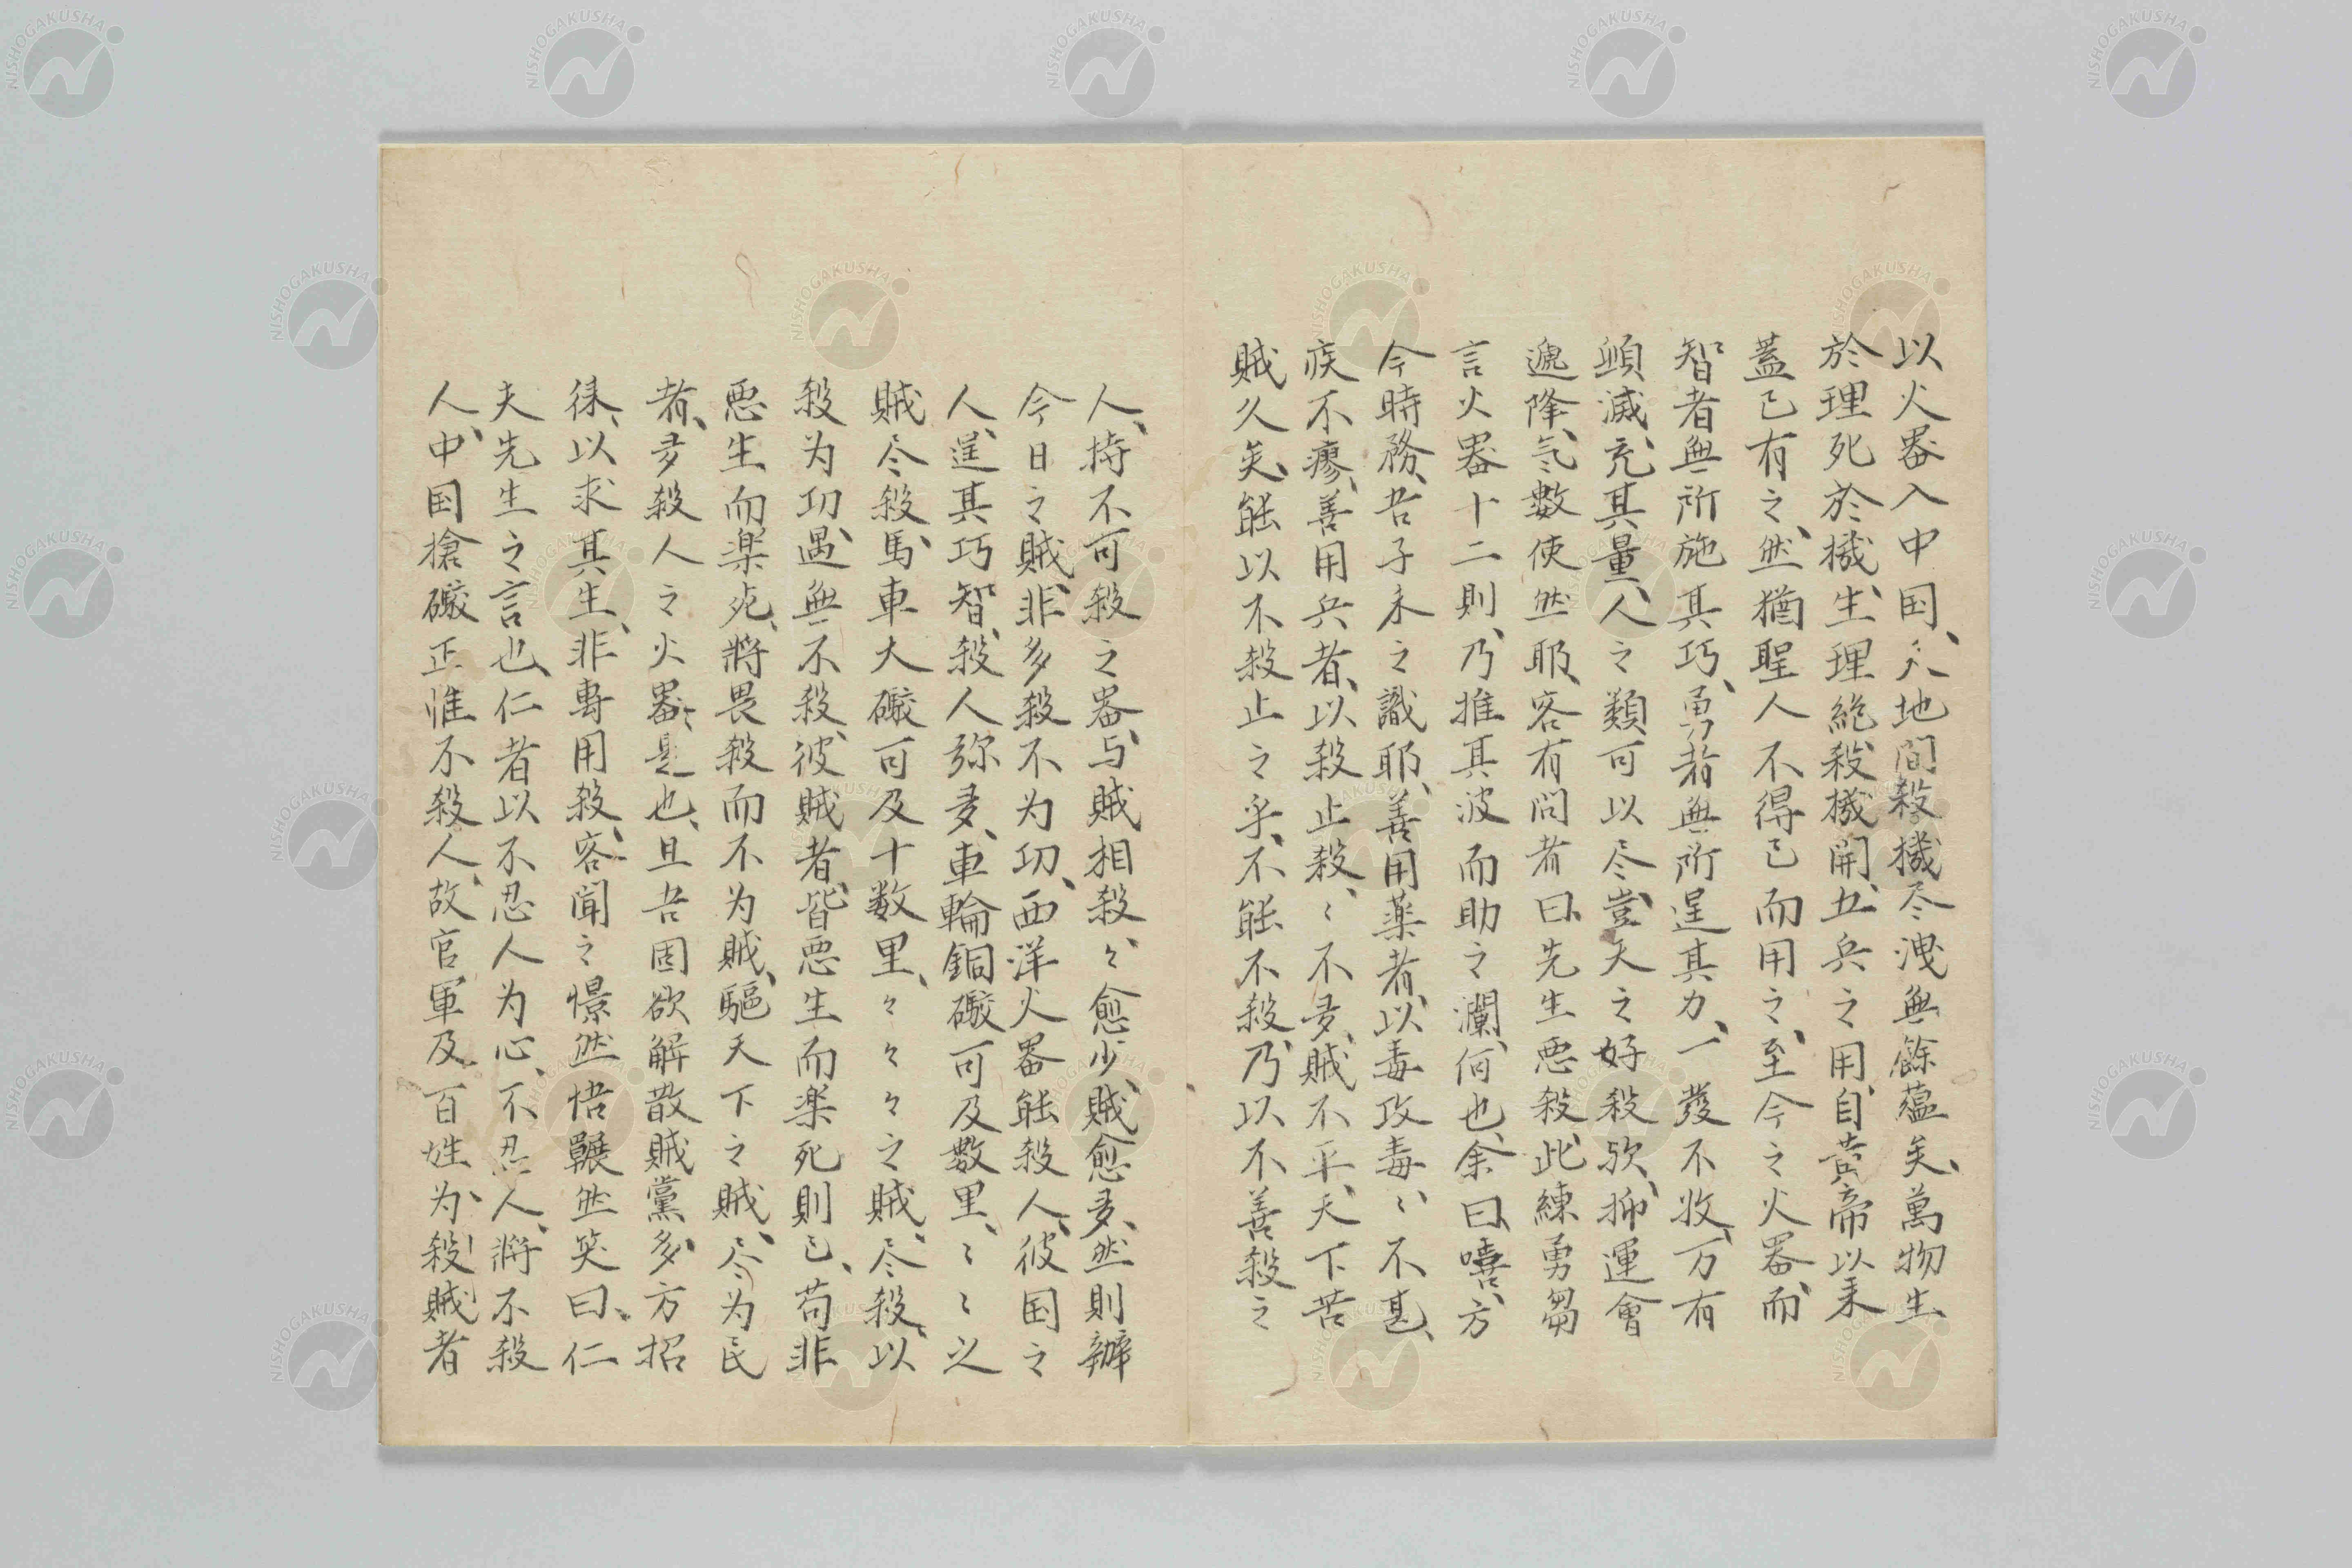 以火器入中国、天地間殺機尽洩無餘蘊矣、萬物生
於理死於機、生理絶殺機開、五兵之用、自黄帝以来
蓋已有之、然猶聖人不得已而用之、至今之火器而、
智者無所施其巧、勇者無所逞其力、一發不收、万有
顛滅、充其量、人之類可以尽、豈天之好殺欤、抑運會
遞降、気數使然耶、客有問者曰、先生悪殺、此練勇芻
言火器十二則、乃推其波而助之瀾、何也、余曰、嘻、方
今時務、吾子未之識耶、善用薬者、以毒攻毒、〻不甚、
疾不瘳、善用兵者、以殺止殺、〻不多、賊不平、天下苦
賊久矣、能以不殺止之乎、不能不殺、乃以不善殺之
人、持不可殺之器、与賊相殺、〻愈少、賊愈多、然則辦
今日之賊、非多殺不为功、西洋火器能殺人、彼国之
人、逞其巧智、殺人弥多、車輪銅礮可及數里、〻〻之
賊尽殺、馬車大礮可及十数里、々々々之賊、尽殺、以
殺为功、遇無不殺、彼賊者、皆悪生而楽死則已、苟非
悪生而楽死、將畏殺而不为賊、驅天下之賊、尽为民
者、多殺人之火器、是也、且吾固欲解散賊黨、多方招
徕、以求其生、非專用殺、客聞之憬然悟、囅然笑曰、仁
夫先生之言也、仁者以不忍人为心、不忍人、將不殺
人、中国搶礮正惟不殺人、故官軍及百姓为殺賊者
NISHOGAKUSHA